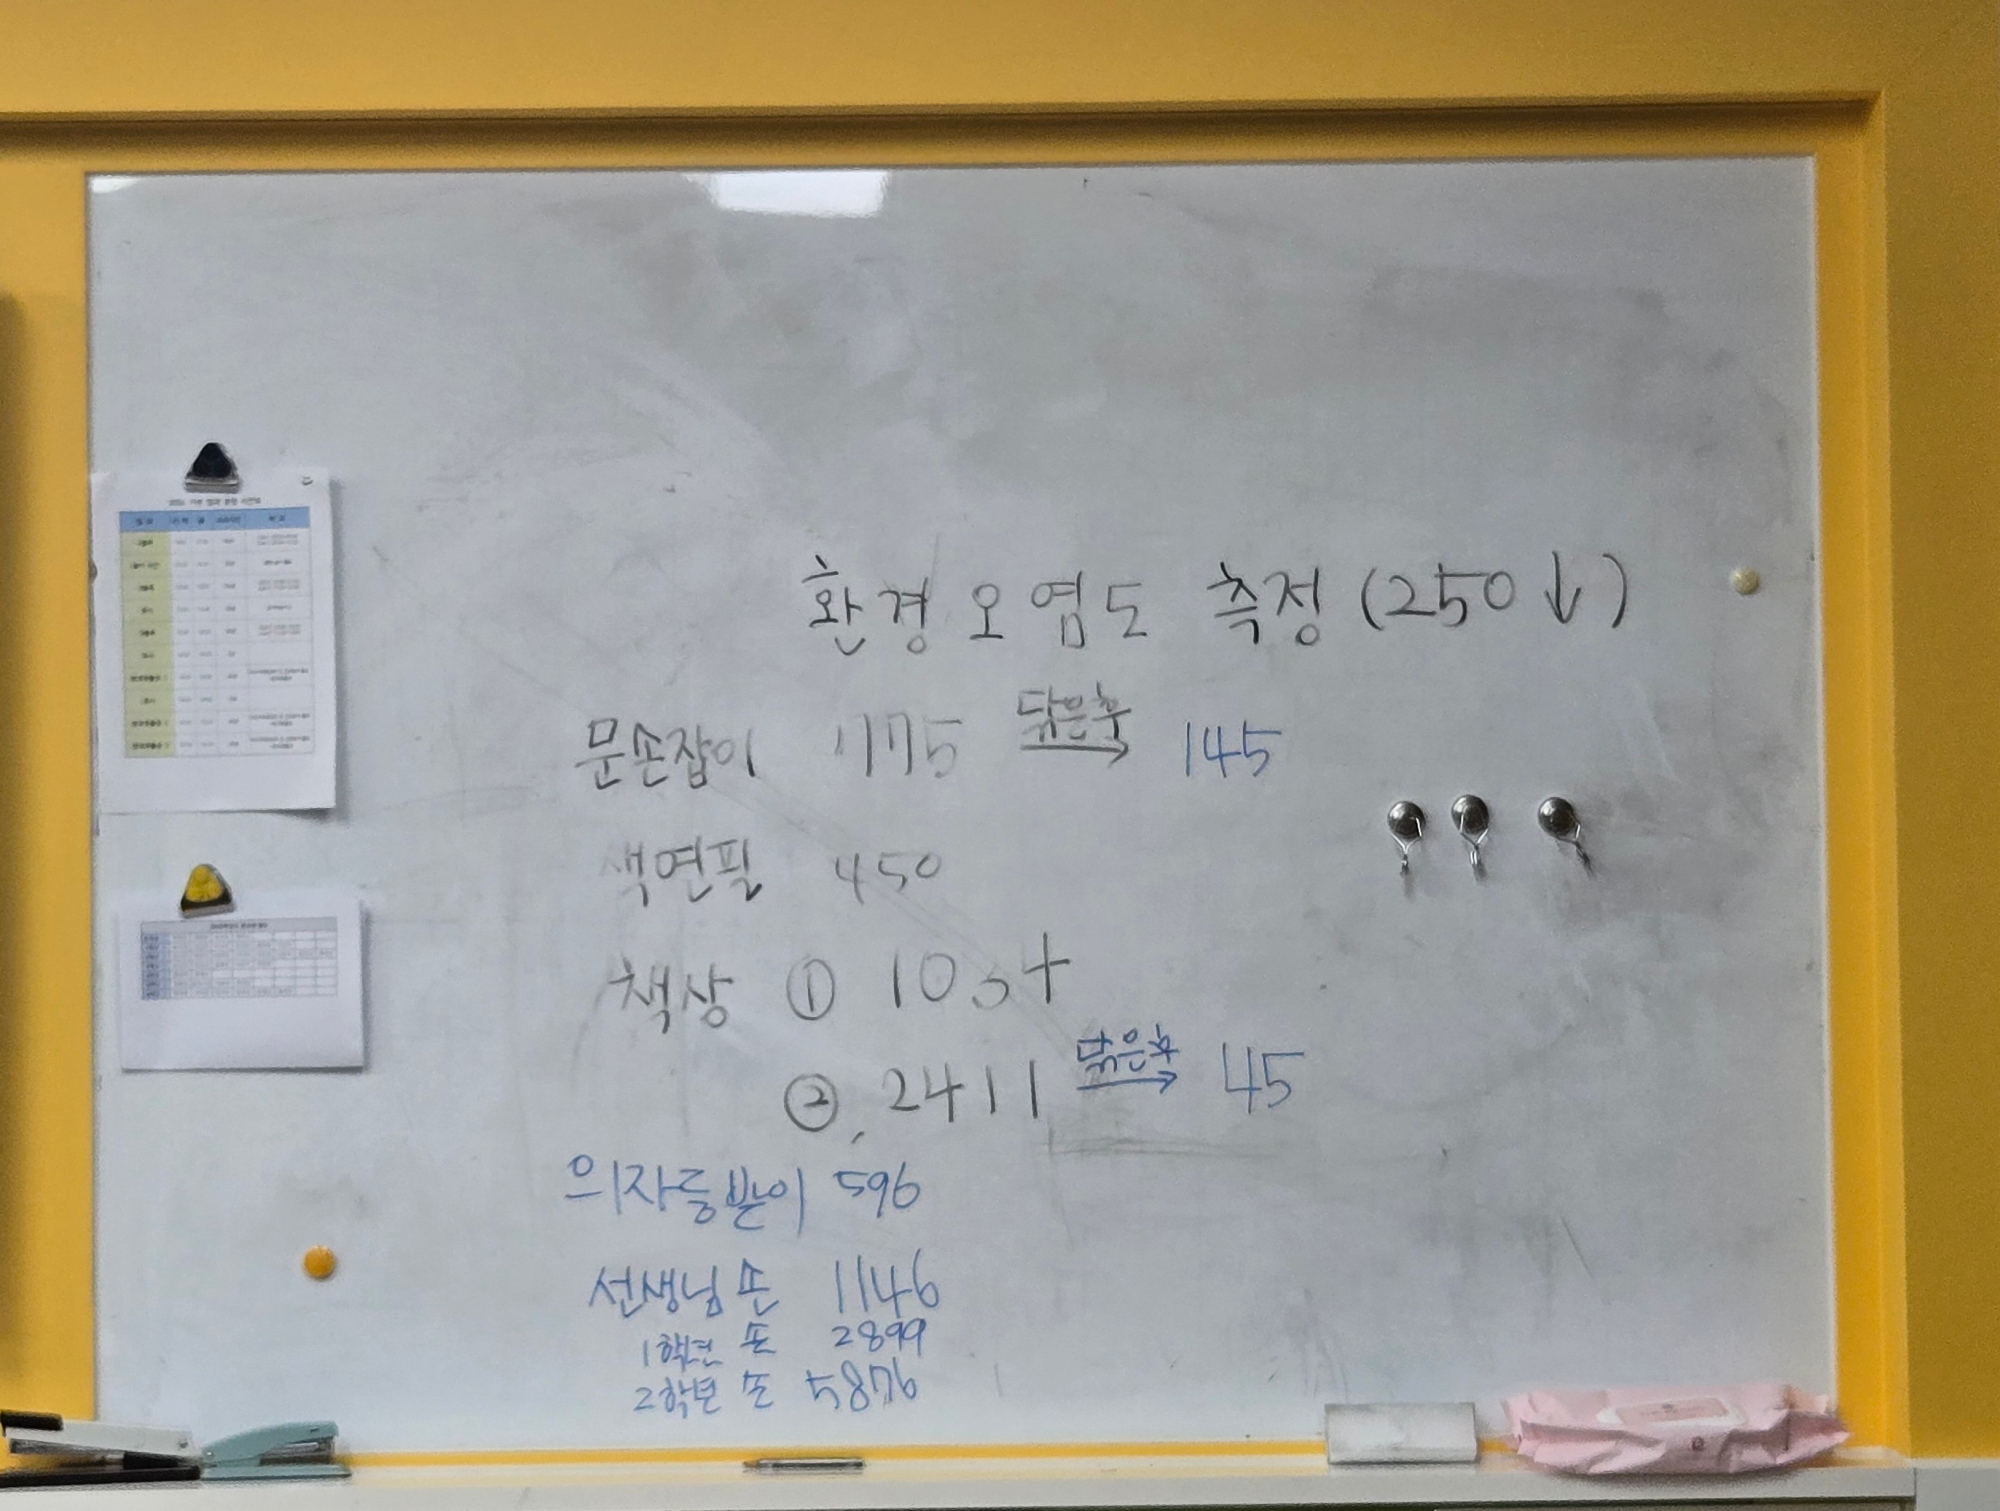 환경 오염도 측정 (250↓)
문손잡이 1175 닦은후 → 145
색연필 450
책상 ① 1034
② 2411 닦은후 → 45
의자등받이 596
선생님 손 1146
1학년 손 2899
2학년 손 5876